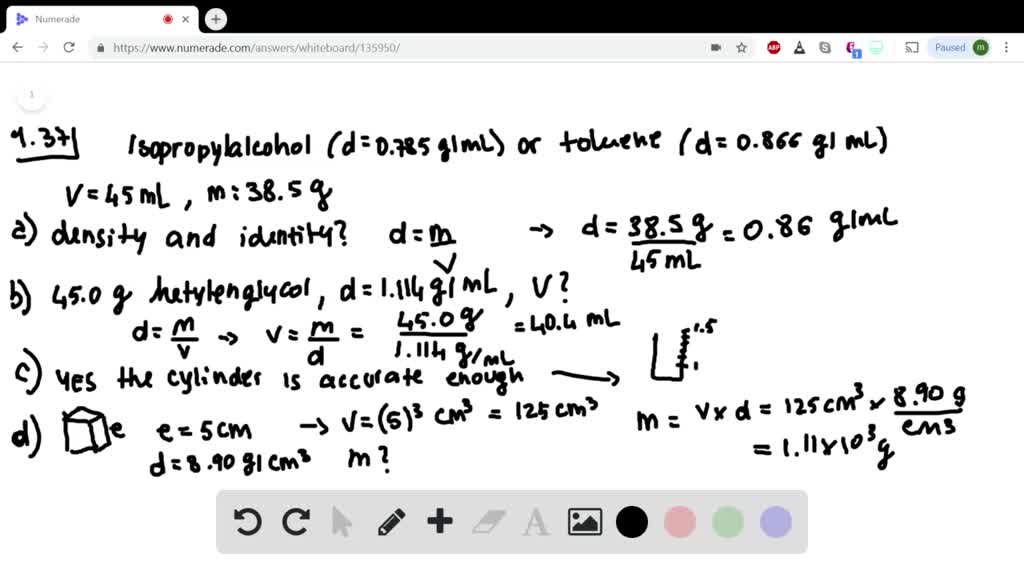 Numerade
https://www.numerade.com/answers/whiteboard/135950/
ABP
1
Paused m
1
1.37 Isopropylalcohol (d=0.785 g/mL) or toluene (d=0.866 g/mL)
V=45mL, m:38.5g
a) density and identity? d=m/V → d=38.5g/45mL=0.86 g/mL
b) 45.0 g hetylenglycol, d=1.114g/mL, V?
d=m/V → V=m/d=45.0g/1.114g/mL=40.4 mL
c) yes the cylinder is accurate enough → 1.5 1
d) e e=5cm → V=(5)³ cm³ = 125cm³ m= V×d=125cm³×8.90 g/cm3
d=8.90g/cm³ m? =1.11×10³g
A